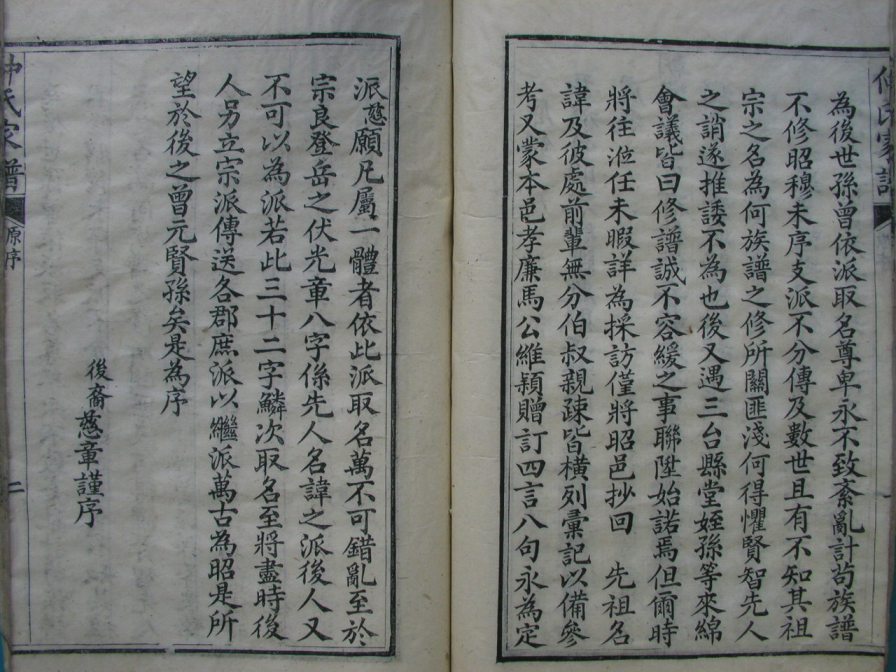 為後世孫曾依派取名尊卑永不致紊亂計苟族譜
不修昭穆未序支派不分傳及數世且有不知其祖
宗之名為何族譜之修所關匪淺何得懼賢智先人
之誚遂推諉不為也後又遇三台縣堂姪孫等來綿
會議皆曰修譜誠不容緩之事聯陞始諾焉但爾時
將往涖任未暇詳為採訪僅將昭邑抄回 先祖名
諱及彼處前輩無分伯叔親疎皆橫列彙記以備參
考又蒙本邑孝廉馬公維穎贈訂四言八句永為定
派慈願凡屬一體者依此派取名萬不可錯亂至於
宗良登岳之伏光章八字係先人名諱之派後人又
不可以為派若此三十二字鱗次取名至將盡時後
人另立宗派傳送各郡庶派以繼派萬古為昭是所
望於後之曾元賢孫矣是為序
後裔慈章謹序
氏家譜
原序
二